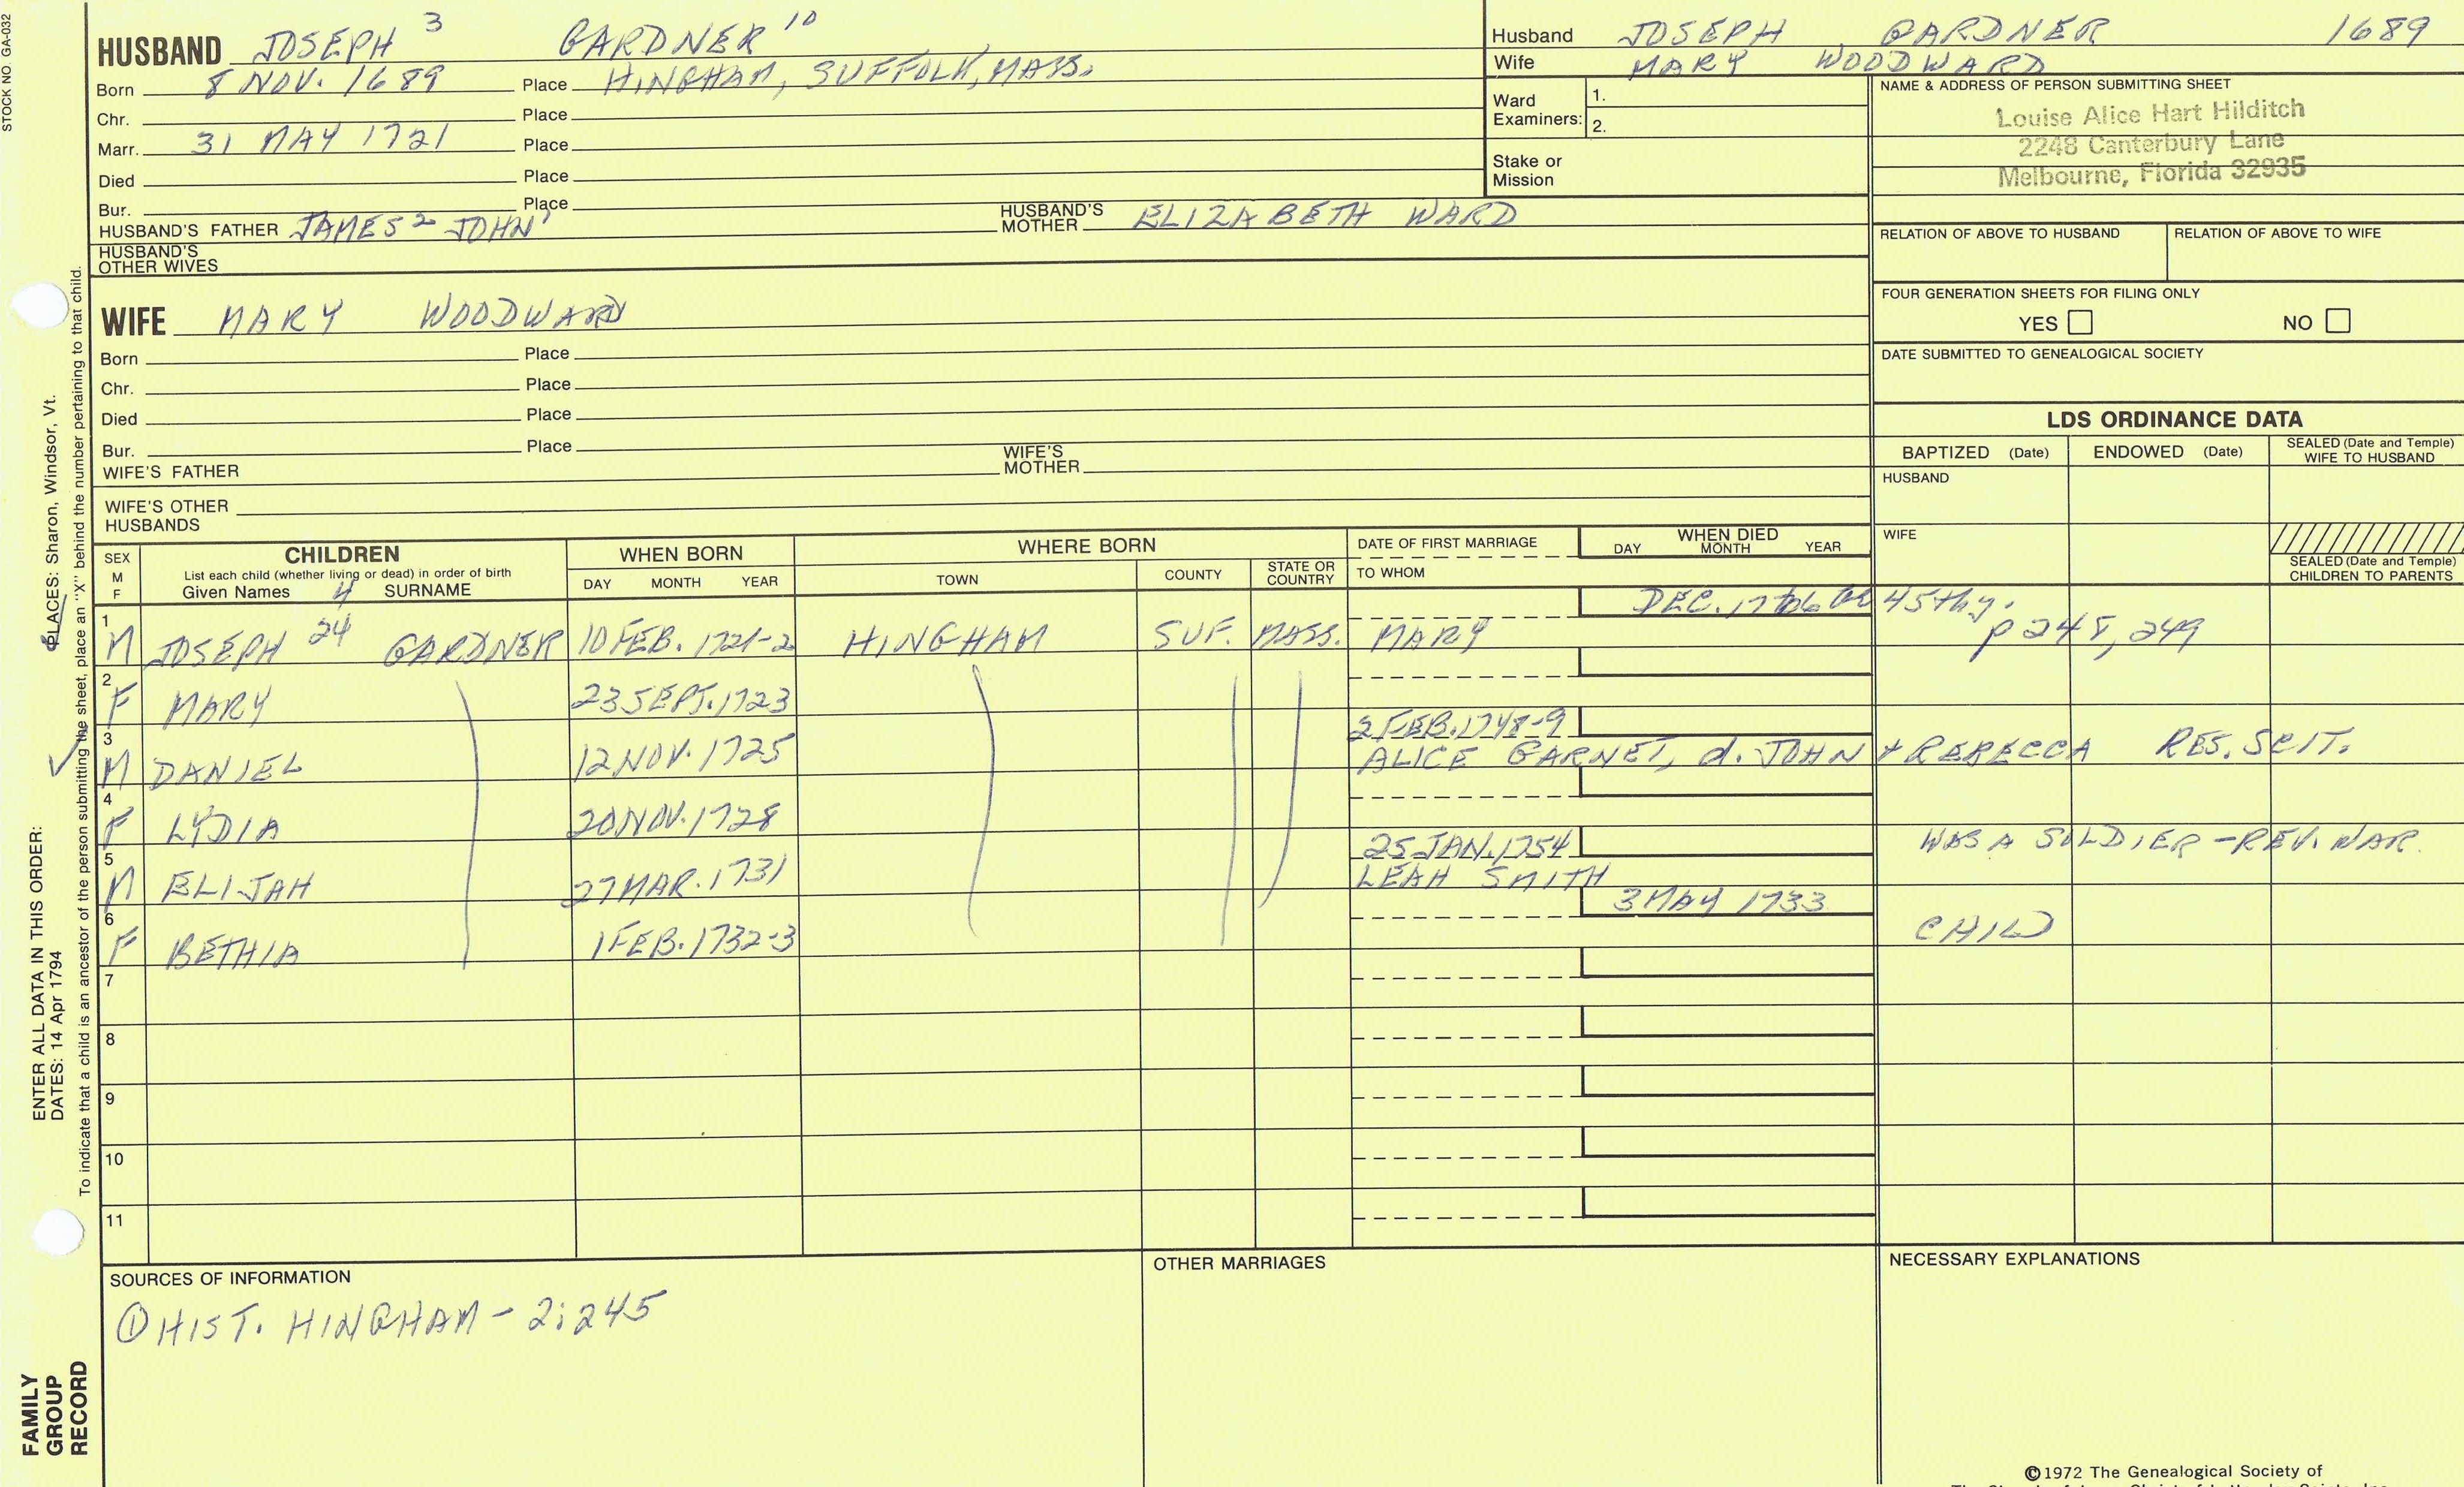 STOCK NO. GA-032
HUSBAND JOSEPH 3 GARDNER 10
Born 8 NOV. 1689 Place HINGHAM, SUFFOLK, MASS.
Chr. Place
Marr. 31 MAY 1721 Place
Died Place
Bur. Place
HUSBAND'S FATHER JAMES 2 JOHN 1 HUSBAND'S MOTHER ELIZABETH WARD
HUSBAND'S OTHER WIVES
WIFE MARY WOODWARD
Born Place
Chr. Place
Died Place
Bur. Place
WIFE'S FATHER WIFE'S MOTHER
WIFE'S OTHER HUSBANDS
Husband JOSEPH GARDNER 1689
Wife MARY WOODWARD
Ward Examiners: 1.
2.
Stake or Mission
NAME & ADDRESS OF PERSON SUBMITTING SHEET
Louise Alice Hart Hilditch
2248 Canterbury Lane
Melbourne, Florida 32935
RELATION OF ABOVE TO HUSBAND RELATION OF ABOVE TO WIFE
FOUR GENERATION SHEETS FOR FILING ONLY
YES NO
DATE SUBMITTED TO GENEALOGICAL SOCIETY
LDS ORDINANCE DATA
BAPTIZED (Date) ENDOWED (Date) SEALED (Date and Temple) WIFE TO HUSBAND
HUSBAND
WIFE
SEALED (Date and Temple) CHILDREN TO PARENTS
SEX M F CHILDREN WHEN BORN WHERE BORN DATE OF FIRST MARRIAGE WHEN DIED
List each child (whether living or dead) in order of birth DAY MONTH YEAR TOWN COUNTY STATE OR COUNTRY TO WHOM DAY MONTH YEAR
Given Names 4 SURNAME
DEC. 45thy.
1 M JOSEPH 24 GARDNER 10 FEB. 1721-2 HINGHAM SUF. MASS. MARY p 248, 249
2 F MARY 23 SEPT. 1723
2 FEB. 1748-9
3 M DANIEL 12 NOV. 1725 ALICE GARNET, d. JOHN + REBECCA RES. SCIT.
4 F LYDIA 20 NOV. 1728
25 JAN. 1754 WAS A SOLDIER - REV. WAR.
5 M ELIJAH 27 MAR. 1731 LEAH SMITH
3 MAY 1733
6 F BETHIA 1 FEB. 1732-3 CHILD
7
8
9
10
11
SOURCES OF INFORMATION OTHER MARRIAGES NECESSARY EXPLANATIONS
① HIST. HINGHAM - 2:245
©1972 The Genealogical Society of
ENTER ALL DATA IN THIS ORDER:
DATES: 14 Apr 1794 PLACES: Sharon, Windsor, Vt.
To indicate that a child is an ancestor of the person submitting the sheet, place an "X" behind the number pertaining to that child.
FAMILY
GROUP
RECORD